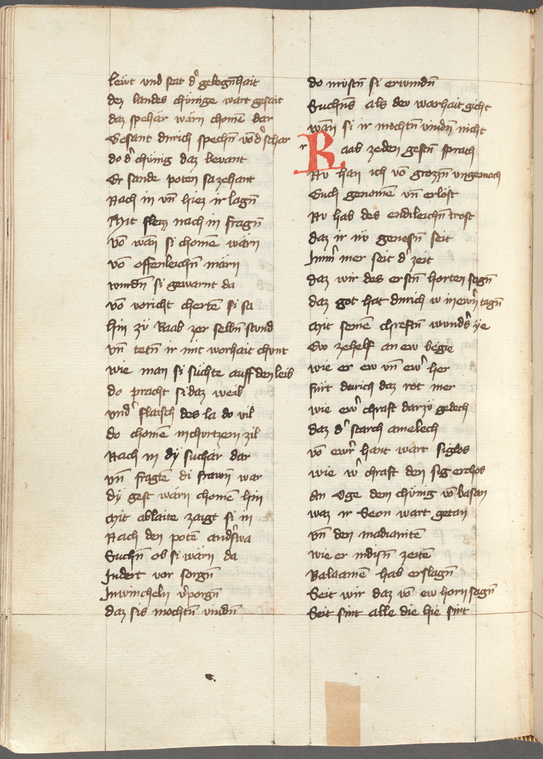 lewt vnd stat d' gelegn̄hait
dez landes chünige wart gesait
daz spehär wärn chomē dar
Gesant durich spechn̄ vō d' schar
do d' chünig daz bevant
Er sande poten sa zehant
Nach in vn̄ hiez ir lagn̄
Mit fleizz nach in fragn̄
vō wan si chomē wärn
vō offenleichn̄ märn
wurdn̄ si gewarnt da
vō voricht chertē si sa
hin zü Raab zer selbn̄ stund
vn̄ tetn̄ ir mit worhait chunt
wie man si süchte auff den leib
do pracht si daz weib
vnd' flachsch des la do vil
do chomē in churtzem zil
Nach in dy süchär dar
vn̄ fragtē di frawn̄ war
dy gest wärn chomē hin
mit ablaite zaigt si in
Nach den potē anderswa
Suchn̄ ob si wärn da
Indert vor sorgn̄
In wincheln v'porgn̄
daz sis mochtn̄ vindn̄
do müstn̄ si erwindn̄
Suchns als der warhait gicht
wan si ir mochtn̄ vindn̄ nicht
r Raab zeden gestn̄ sprach
Nv han ich vō grozn̄ vngemach
Euch genomen vn̄ erlost
Nv hab des endleichn̄ trost
daz ir nv genesn̄ seit
Imm' mer seit d' zeit
daz wir des erstn̄ horten sagn̄
daz got hat durich iv in ewrn̄ tagn̄
mit seinē chreftn̄ wund's ye
Ew zehelf an ew begie
wie er ew vn̄ ew' her
furt durich daz rot mer
wie ew' chraft darzü gedech
daz d' starch amelech
vō ewr' hant wart siglos
wie iw' chraft den sig erchos
An Oge den chünig vō basan
waz ir Seon wart getan
vn̄ den madianitē
wie er in disn̄ zeitē
Balaamē hab erslagn̄
Seit wir daz vō ew horn̄ sagn̄
Seit sint alle die hie sint